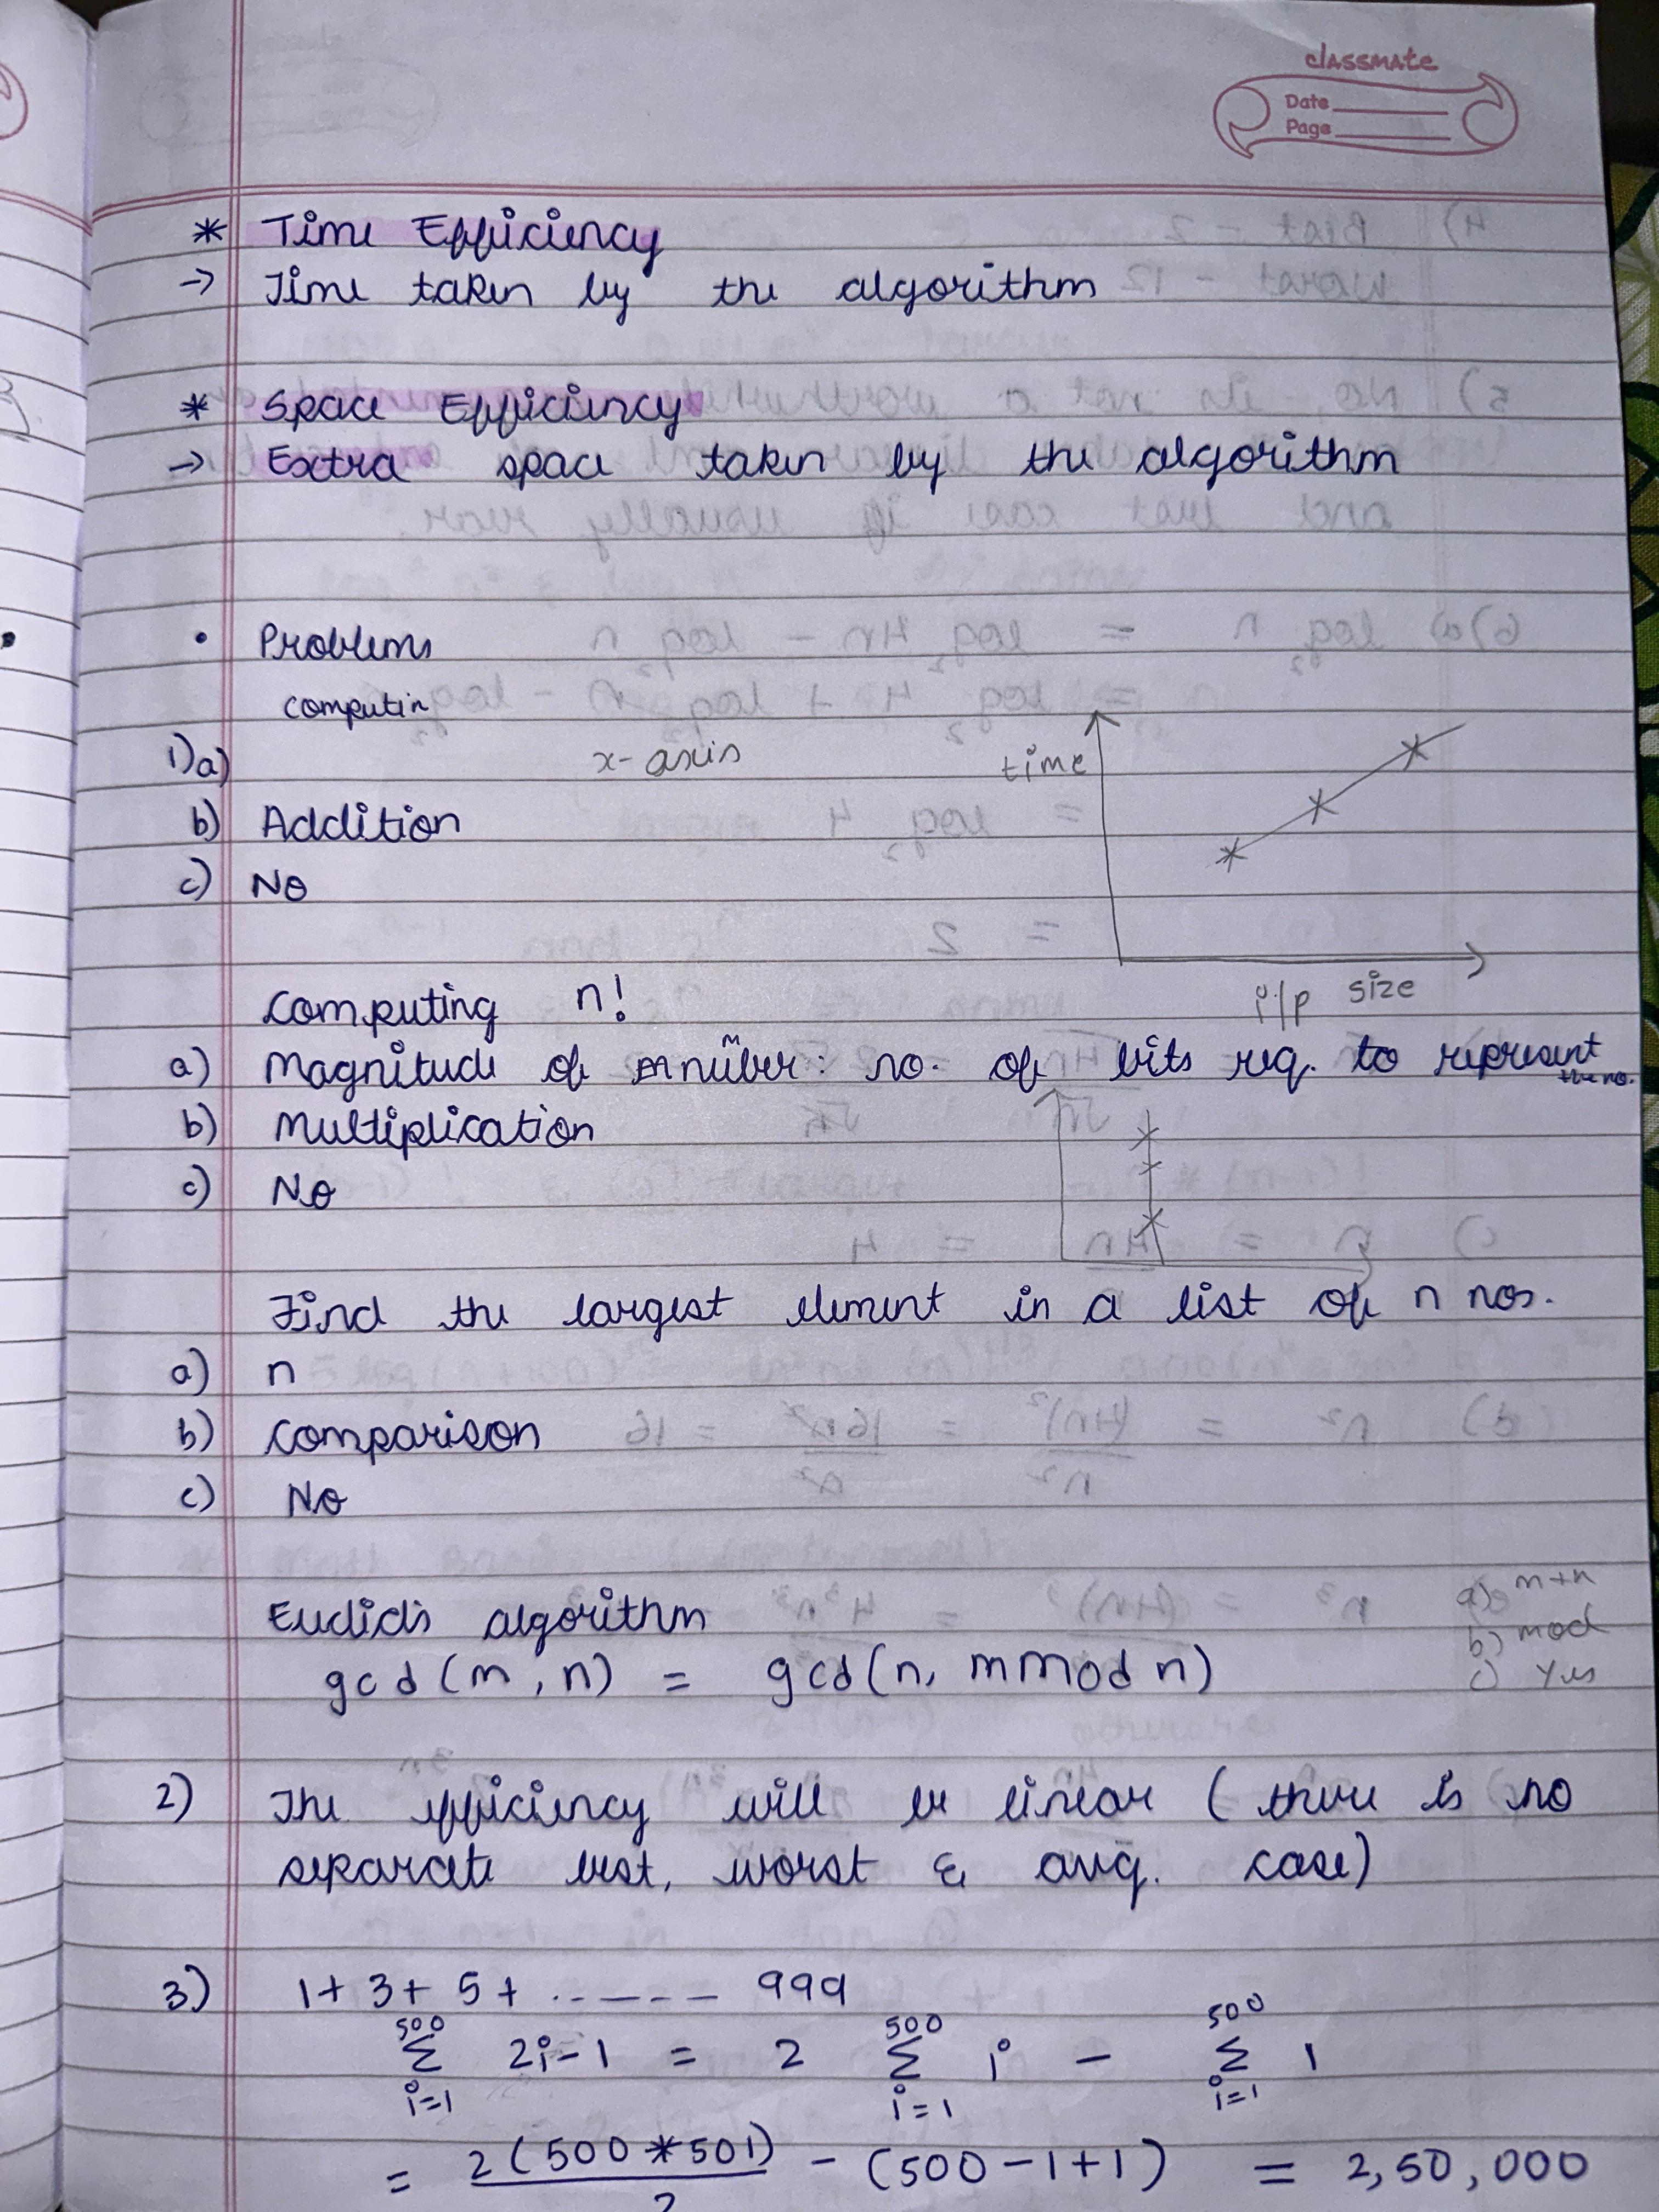 classmate
Date
Page
* Time Efficiency
→ Time taken by the algorithm
* Space Efficiency
→ Extra space taken by the algorithm
• Problems
computin
1) a) x-axis
time
b) Addition
c) No
i/p size
Computing n!
a) Magnitude of number: no. of bits req. to represent the no.
b) Multiplication
c) No
Find the largest element in a list of n nos.
a) n
b) Comparison
c) No
Euclid's algorithm
gcd(m, n) = gcd(n, m mod n)
a) m+n
b) mod
c) Yes
2) The efficiency will be linear (there is no
separate best, worst & avg. case)
3) 1 + 3 + 5 + ...... 999
500 500 500
Σ 2i-1 = 2 Σ i - Σ 1
i=1 i=1 i=1
= 2(500*501)/2 - (500-1+1) = 2,50,000